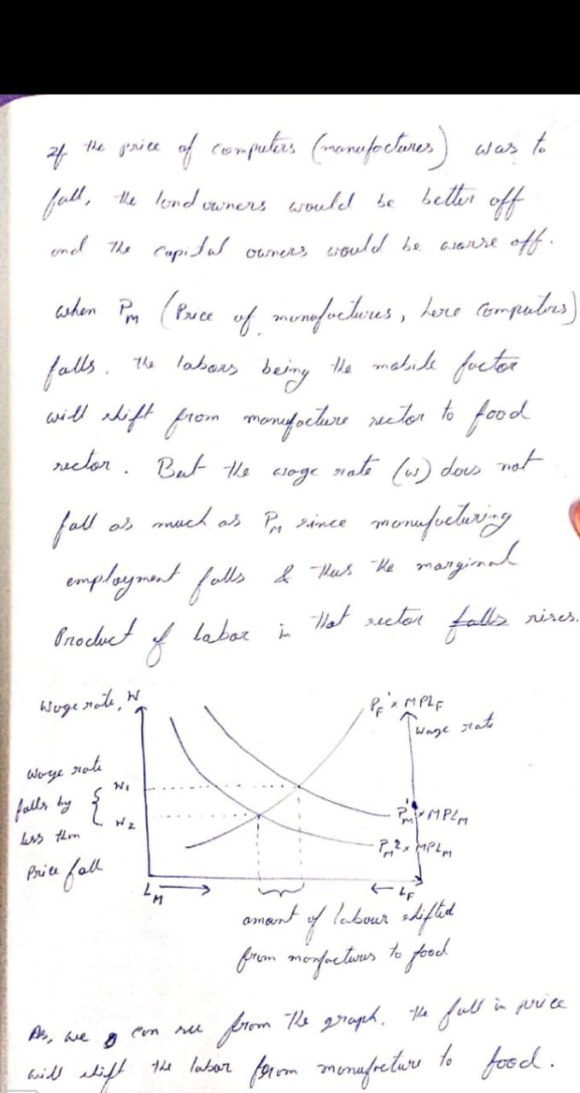 If the price of computers (manufactures) was to
fall, the land owners would be better off
and the capital owners would be worse off.
when P_M (Price of manufactures, here Computers)
falls. The labors being the mobile factor
will shift from manufacture sector to food
sector. But the wage rate (w) does not
fall as much as P_M since manufacturing
employment falls & thus the marginal
Product of labor in that sector falls rises.
Wage rate, W
P_F' x MPL_F
Wage rate
Wage rate
falls by
less than
Price fall
W1
W2
P_M' x MPL_M
P_M2 x MPL_M
L_M →
← L_F
amount of labour shifted
from manfactures to food
As, we can see from the graph, the fall in price
will shift the labor from manufacture to food.